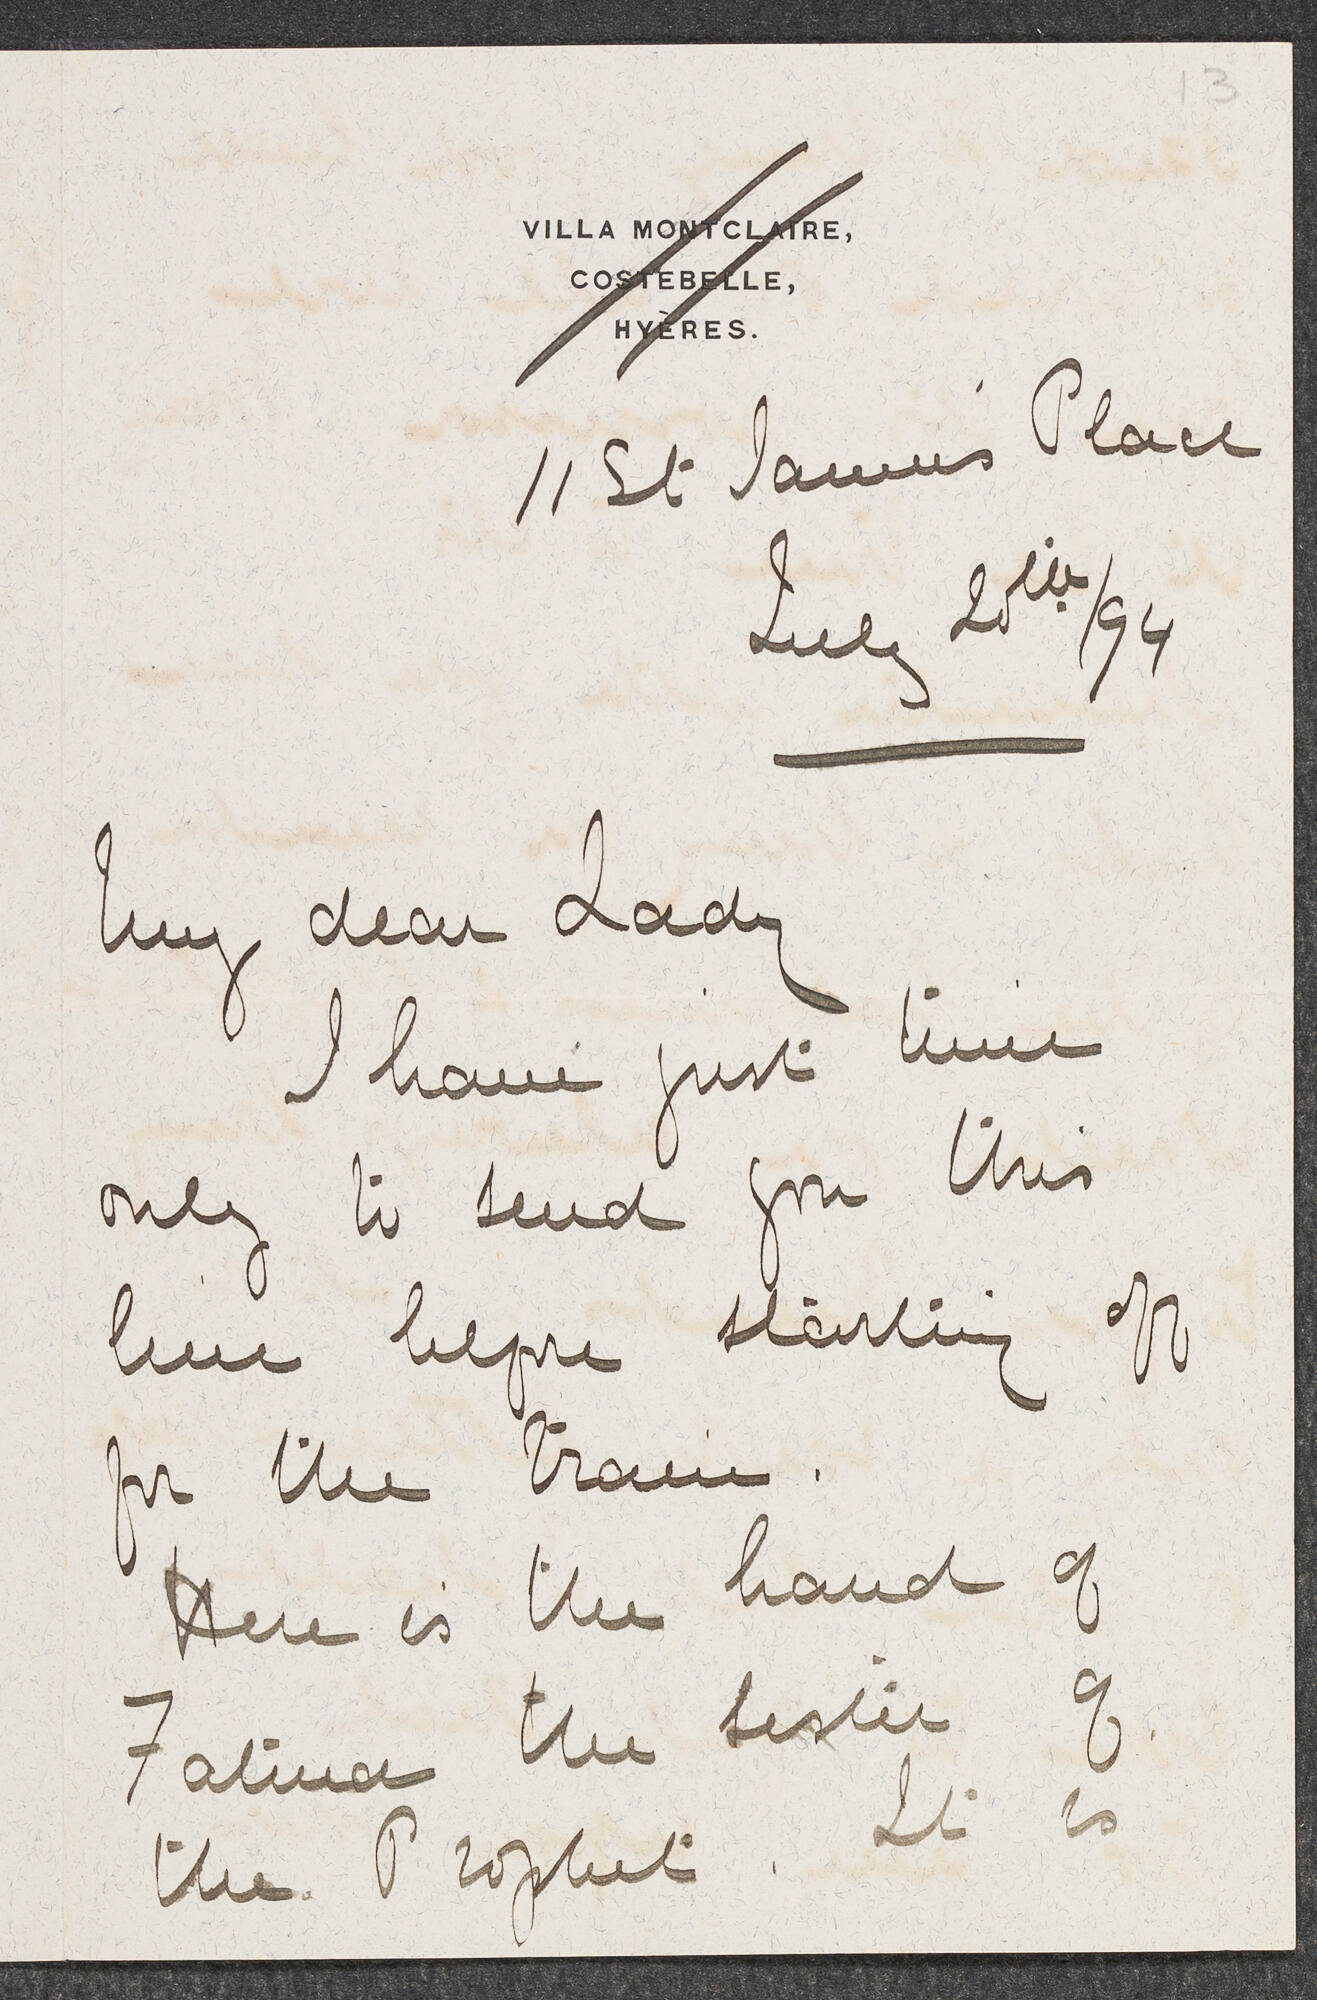 13
VILLA MONTCLAIRE,
COSTEBELLE,
HYÈRES.
11 St James's Place
July 20th/94
My dear Lady
I have just time
only to send you this
line before starting off
for the train.
Here is the hand of
Fatima the sister of
the Prophet. It is